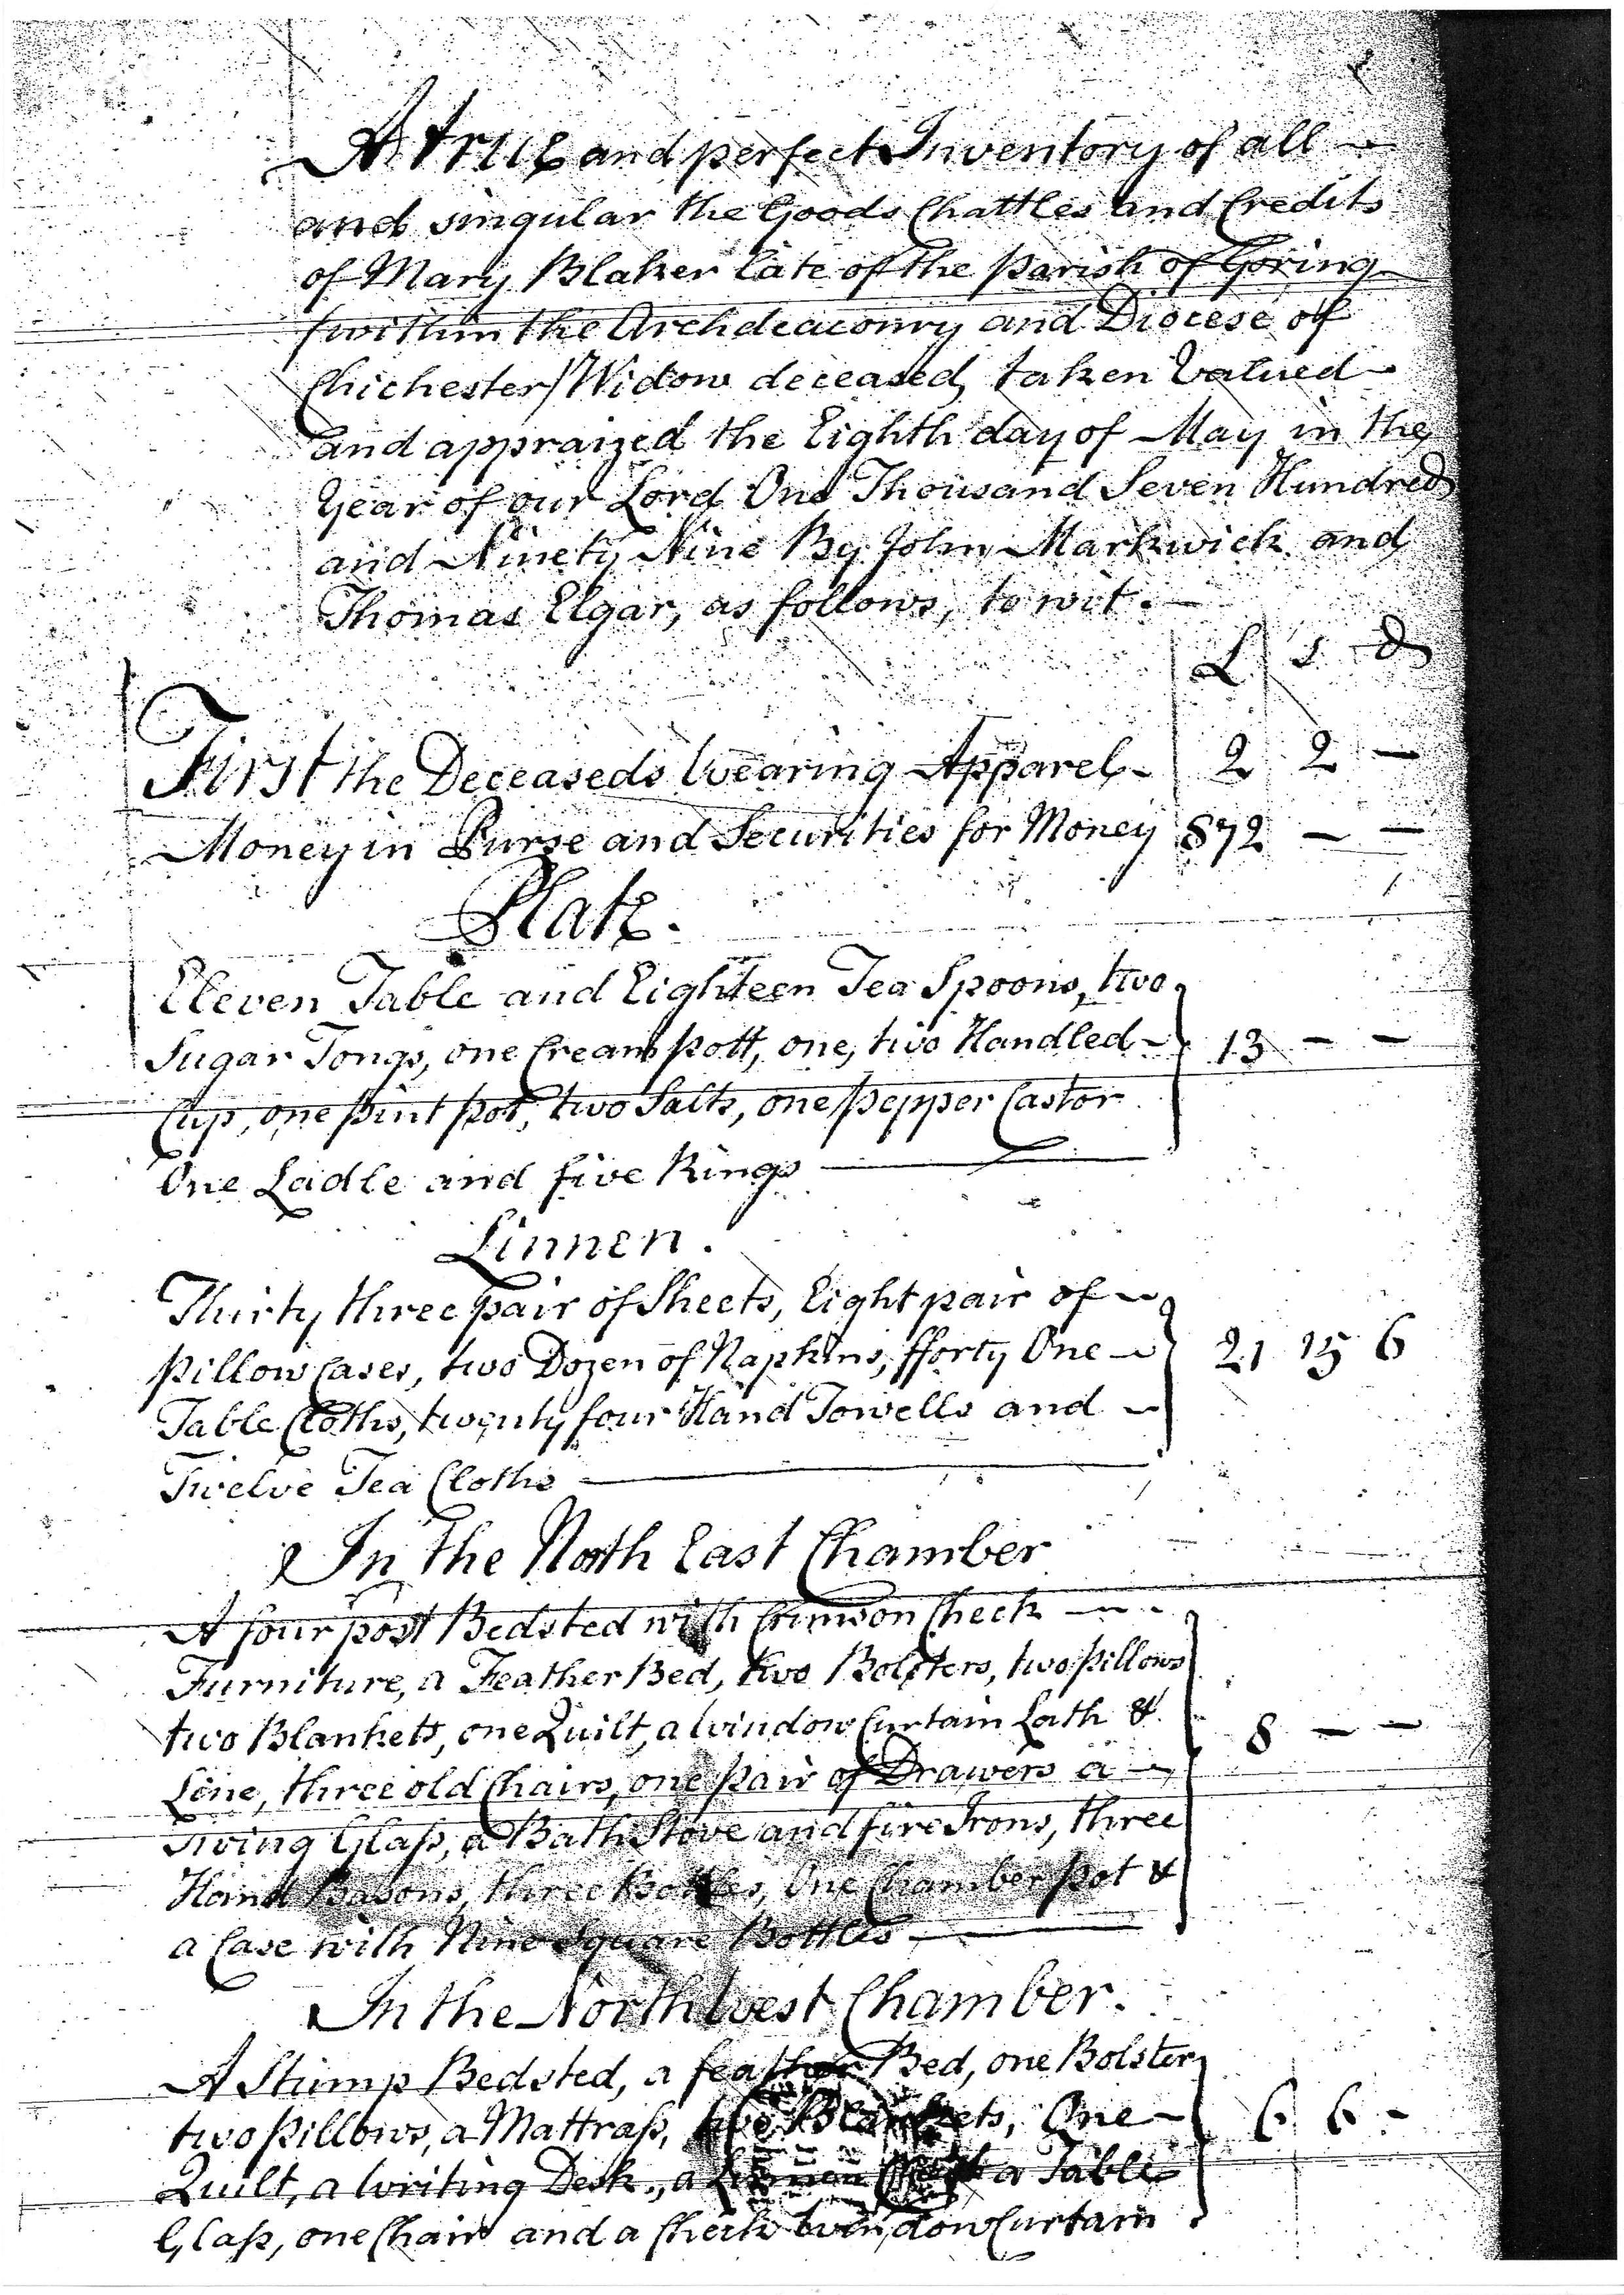 A true and perfect Inventory of all
and singular the Goods Chattles and Credits
of Mary Blaker late of the parish of Goring
(within the Archdeaconry and Diocese of
Chichester) Widow deceased, taken Valued
and appraized the Eighth day of May in the
Year of our Lord One Thousand Seven Hundred
and Ninety Nine By John Markwick and
Thomas Elgar, as follows, to wit.
L s d
First the Deceaseds Wearing Apparel 2 2 —
Money in Purse and Securities for Money 872 — —
Plate.
Eleven Table and Eighteen Tea Spoons, two
Sugar Tongs, one Cream pott, one, two Handled 13 — —
Cup, one pint pot, two Salts, one pepper Castor
One Ladle and five Rings
Linnen.
Thirty three pair of Sheets, Eight pair of
pillow Cases, two Dozen of Napkins, fforty One 21 15 6
Table Cloths, twenty four Hand Towells and
Twelve Tea Cloths
In the North East Chamber
A four post Bedsted with Crimson Check
Furniture, a Feather Bed, two Bolsters, two pillows
two Blankets, one Quilt, a Window Curtain Lath & 8 — —
Line, three old Chairs, one pair of Drawers a
Swing Glass, a Bath Stove and fire Irons, three
Hand Basons, three Bottles, One Chamber pot &
a Case with Nine Square Bottles
In the North West Chamber.
A Stump Bedsted, a feather Bed, one Bolster
two pillows, a Mattrass, two Blankets, One 6 6 -
Quilt, a Writing Desk, a a Table
Glass, one Chair and a Check Window Curtain